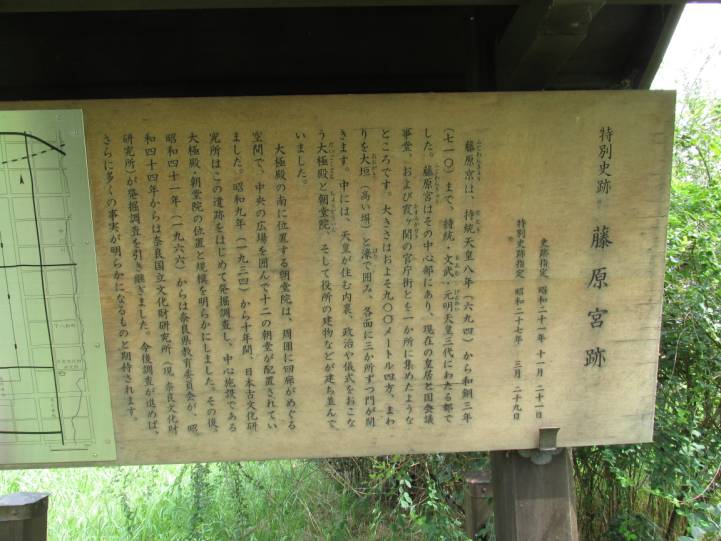 特別史跡 藤原宮跡
史跡指定 昭和二十一年 十一月 二十一日
特別史跡指定 昭和二十七年 三月 二十九日
藤原京は、持統天皇八年（六九四）から和銅三年
（七一〇）まで、持統・文武・元明天皇三代にわたる都で
した。藤原宮はその中心部にあり、現在の皇居と国会議
事堂、および霞ヶ関の官庁街とを一か所に集めたような
ところです。大きさはおよそ九〇〇メートル四方、まわ
りを大垣（高い塀）と濠で囲み、各面に三か所ずつ門が開
きます。中には、天皇が住む内裏、政治や儀式をおこな
う大極殿と朝堂院、そして役所の建物などが建ち並んで
いました。
大極殿の南に位置する朝堂院は、周囲に回廊がめぐる
空間で、中央の広場を囲んで十二の朝堂が配置されてい
ました。昭和九年（一九三四）から十年間、日本古文化研
究所はこの遺跡をはじめて発掘調査し、中心施設である
大極殿・朝堂院の位置と規模を明らかにしました。その後、
昭和四十一年（一九六六）からは奈良県教育委員会が、昭
和四十四年からは奈良国立文化財研究所（現 奈良文化財
研究所）が発掘調査を引き継ぎました。今後調査が進めば、
さらに多くの事実が明らかになるものと期待されます。